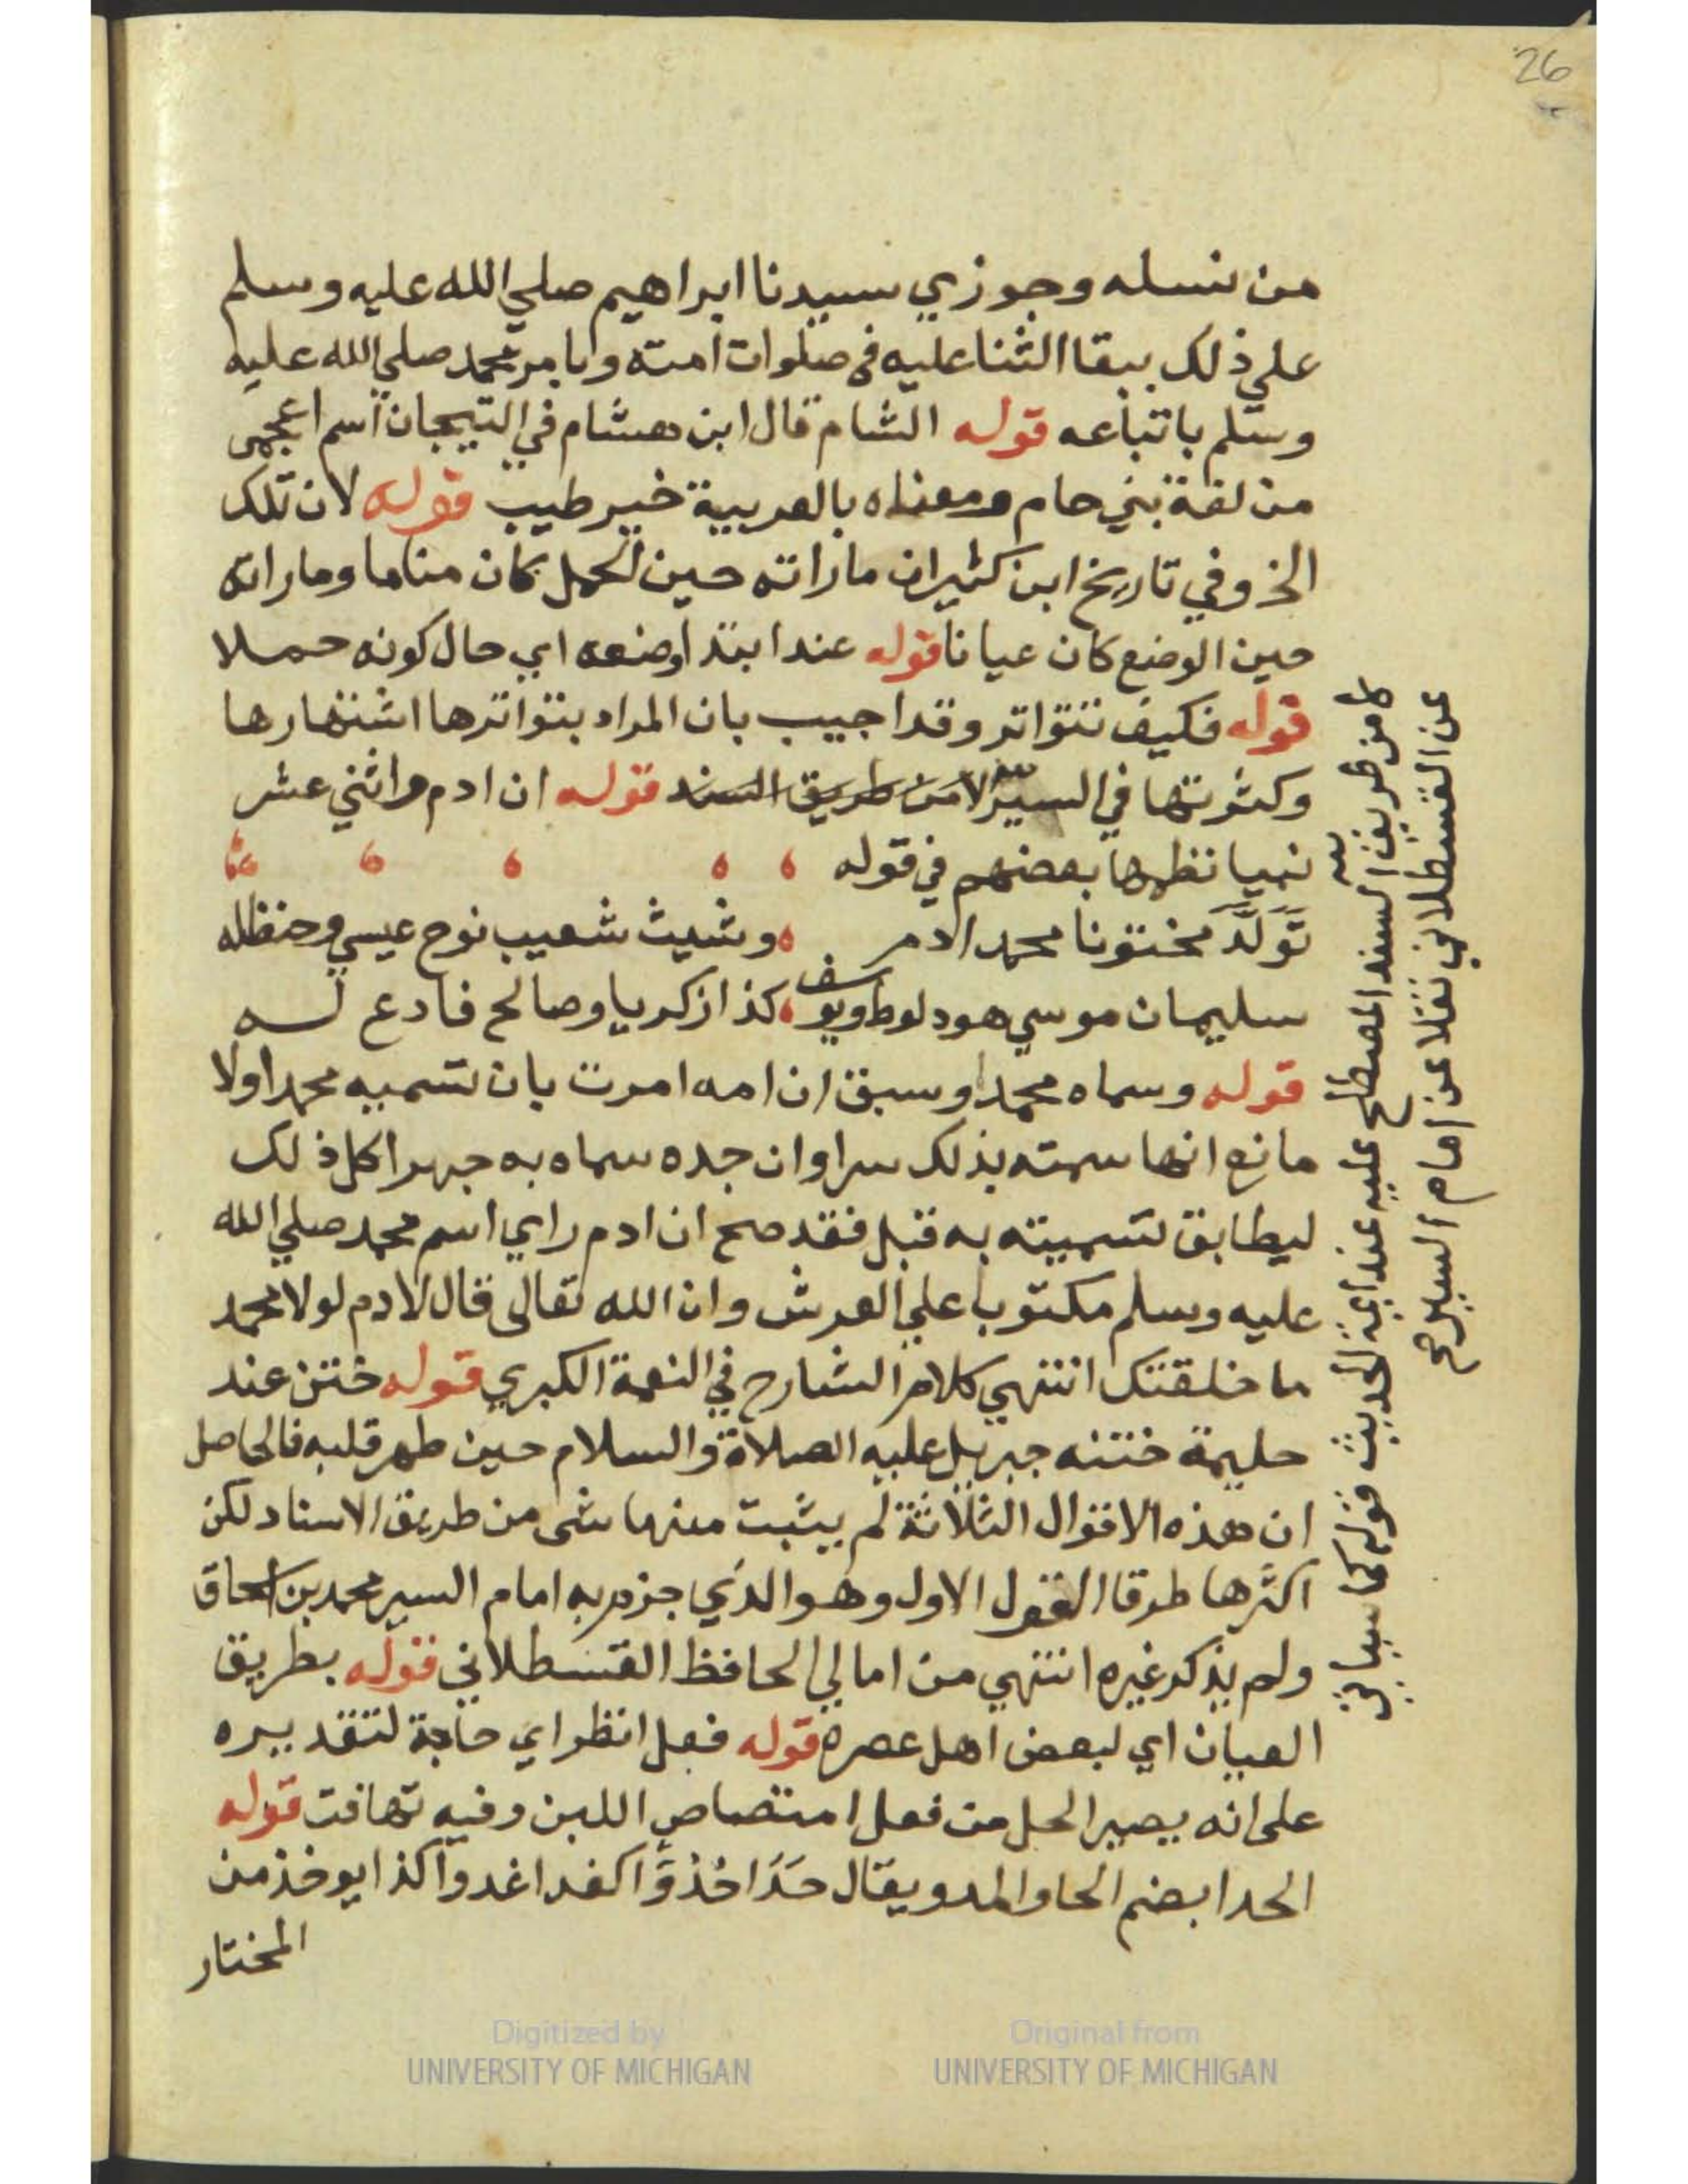 26
من نسله وجوزي سيدنا ابراهيم صلي الله عليه وسلم
علي ذلك ببقا الثنا عليه في صلوات امته وبامر محمد صلي الله عليه
وسلم باتباعه قوله الشام قال ابن هشام في التيجان اسم اعجمى
من لغة بني حام ومعناه بالعربية خير طيب قوله لان تلك
الخ وفي تاريخ ابن كثير ان ماراته حين الحمل كان مناما وماراته
حين الوضع كان عيانا قوله عند ابتدا وضعه اي حال كونه حملا
قوله فكيف تتواتر وقد اجيب بان المراد بتواترها اشتهارها
وكثرتها في السير لا من طريق السند قوله ان ادم واثني عشر
نبيا نظمها بعضهم في قوله
تَوَلَّدَ مختونا محمد ادم وشيث شعيب نوح عيسي وحنظله
سليمان موسي هود لوط ويوسف كذا زكريا وصالح فادع له
قوله وسماه محمدا وسبق ان امه امرت بان تسميه محمدا ولا
مانع انها سمته بذلك سرا وان جده سماه به جهرا كل ذلك
ليطابق تسميته به قبل فقد صح ان ادم راي اسم محمد صلي الله
عليه وسلم مكتوبا علي العرش وان الله تعالى قال لادم لولا محمد
ما خلقتك انتهي كلام الشارح في النعمة الكبري قوله ختن عند
حليمة ختنه جبريل عليه الصلاة والسلام حين طهر قلبه فالحاصل
ان هذه الاقوال الثلاثة لم يثبت منها شى من طريق الاسناد لكن
اكثرها طرقا القول الاول وهو الذي جزم به امام السير محمد بن اسحاق
ولم يذكر غيره انتهي من امالي الحافظ القسطلاني قوله بطريق
العيان اي لبعض اهل عصره قوله فعل انظر اي حاجة لتقديره
على انه يصير الحل من فعل امتصاص اللبن وفيه تهافت قوله
الحدا بضم الحا والمد ويقال حَدَا حُدْوًا كغدا غدوا كذا يوخذ من
المختار
لا من طريق السند المصطلح عليه عند ايمة الحديث قوله كما سياتي
عن القسطلاني نقلا عن امام السير صح